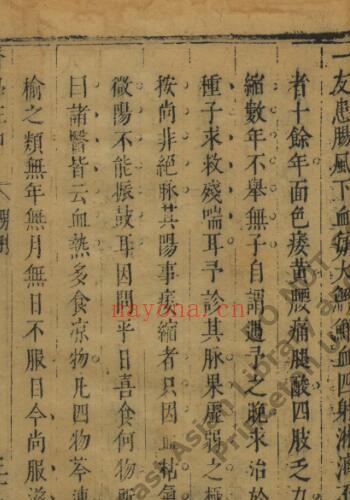 一友患腸風下血竅大鮮血四射淋漓
者十餘年面色痿黃腰痛腿酸四肢乏力
縮數年不舉無子自謂遇予之晚求治於
種子求救殘喘耳予診其脉果虛弱之極
按尚非絕脉其陽事痿縮者只因血枯氣
微陽不能振鼓耳因問平日喜食何物
曰諸醫皆云血熱多食凉物凡四物芩連
榆之類無年無月無日不服目今尚服
nayona.cn
DO NOT
East Asian Library and
Princeton Un